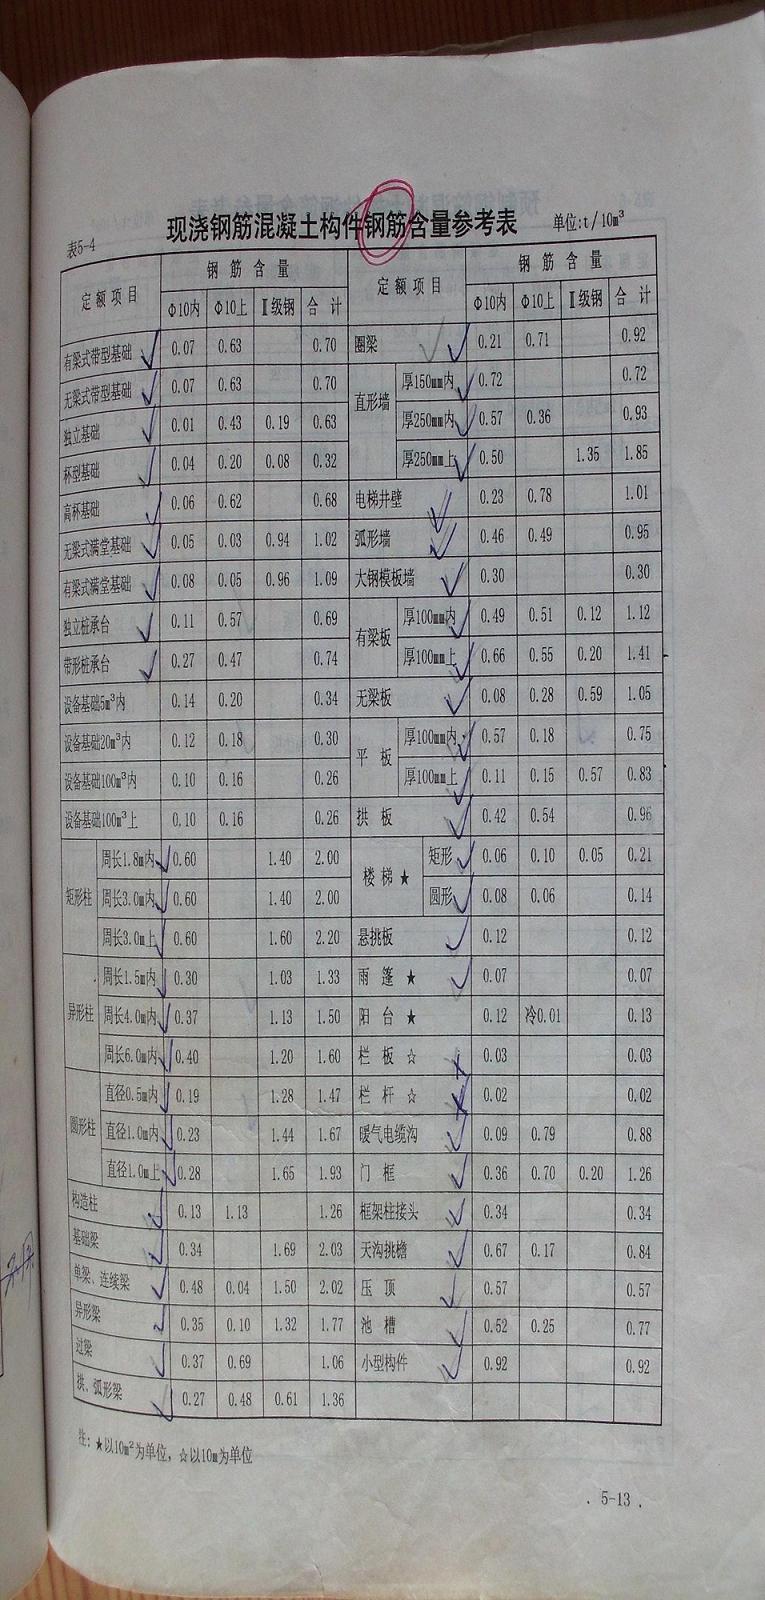 现浇钢筋混凝土构件钢筋含量参考表
表5-4 单位:t/10m³
定额项目 钢筋含量 定额项目 钢筋含量
Φ10内 Φ10上 Ⅱ级钢 合计 Φ10内 Φ10上 Ⅱ级钢 合计
有梁式带型基础 0.07 0.63 0.70 圈梁 0.21 0.71 0.92
无梁式带型基础 0.07 0.63 0.70 直形墙 厚150mm内 0.72 0.72
独立基础 0.01 0.43 0.19 0.63 厚250mm内 0.57 0.36 0.93
杯型基础 0.04 0.20 0.08 0.32 厚250mm上 0.50 1.35 1.85
高杯基础 0.06 0.62 0.68 电梯井壁 0.23 0.78 1.01
无梁式满堂基础 0.05 0.03 0.94 1.02 弧形墙 0.46 0.49 0.95
有梁式满堂基础 0.08 0.05 0.96 1.09 大钢模板墙 0.30 0.30
独立桩承台 0.11 0.57 0.69 有梁板 厚100mm内 0.49 0.51 0.12 1.12
带形桩承台 0.27 0.47 0.74 厚100mm上 0.66 0.55 0.20 1.41
设备基础5m³内 0.14 0.20 0.34 无梁板 0.08 0.28 0.59 1.05
设备基础20m³内 0.12 0.18 0.30 平板 厚100mm内 0.57 0.18 0.75
设备基础100m³内 0.10 0.16 0.26 厚100mm上 0.11 0.15 0.57 0.83
设备基础100m³上 0.10 0.16 0.26 拱板 0.42 0.54 0.96
矩形柱 周长1.8m内 0.60 1.40 2.00 楼梯★ 矩形 0.06 0.10 0.05 0.21
周长3.0m内 0.60 1.40 2.00 圆形 0.08 0.06 0.14
周长3.0m上 0.60 1.60 2.20 悬挑板 0.12 0.12
异形柱 周长1.5m内 0.30 1.03 1.33 雨篷★ 0.07 0.07
周长4.0m内 0.37 1.13 1.50 阳台★ 0.12 冷0.01 0.13
周长6.0m内 0.40 1.20 1.60 栏板☆ 0.03 0.03
圆形柱 直径0.5m内 0.19 1.28 1.47 栏杆☆ 0.02 0.02
直径1.0m内 0.23 1.44 1.67 暖气电缆沟 0.09 0.79 0.88
直径1.0m上 0.28 1.65 1.93 门框 0.36 0.70 0.20 1.26
构造柱 0.13 1.13 1.26 框架柱接头 0.34 0.34
基础梁 0.34 1.69 2.03 天沟挑檐 0.67 0.17 0.84
单梁、连续梁 0.48 0.04 1.50 2.02 压顶 0.57 0.57
异形梁 0.35 0.10 1.32 1.77 池槽 0.52 0.25 0.77
过梁 0.37 0.69 1.06 小型构件 0.92 0.92
拱、弧形梁 0.27 0.48 0.61 1.36
注：★以10m²为单位，☆以10m为单位
. 5-13 .